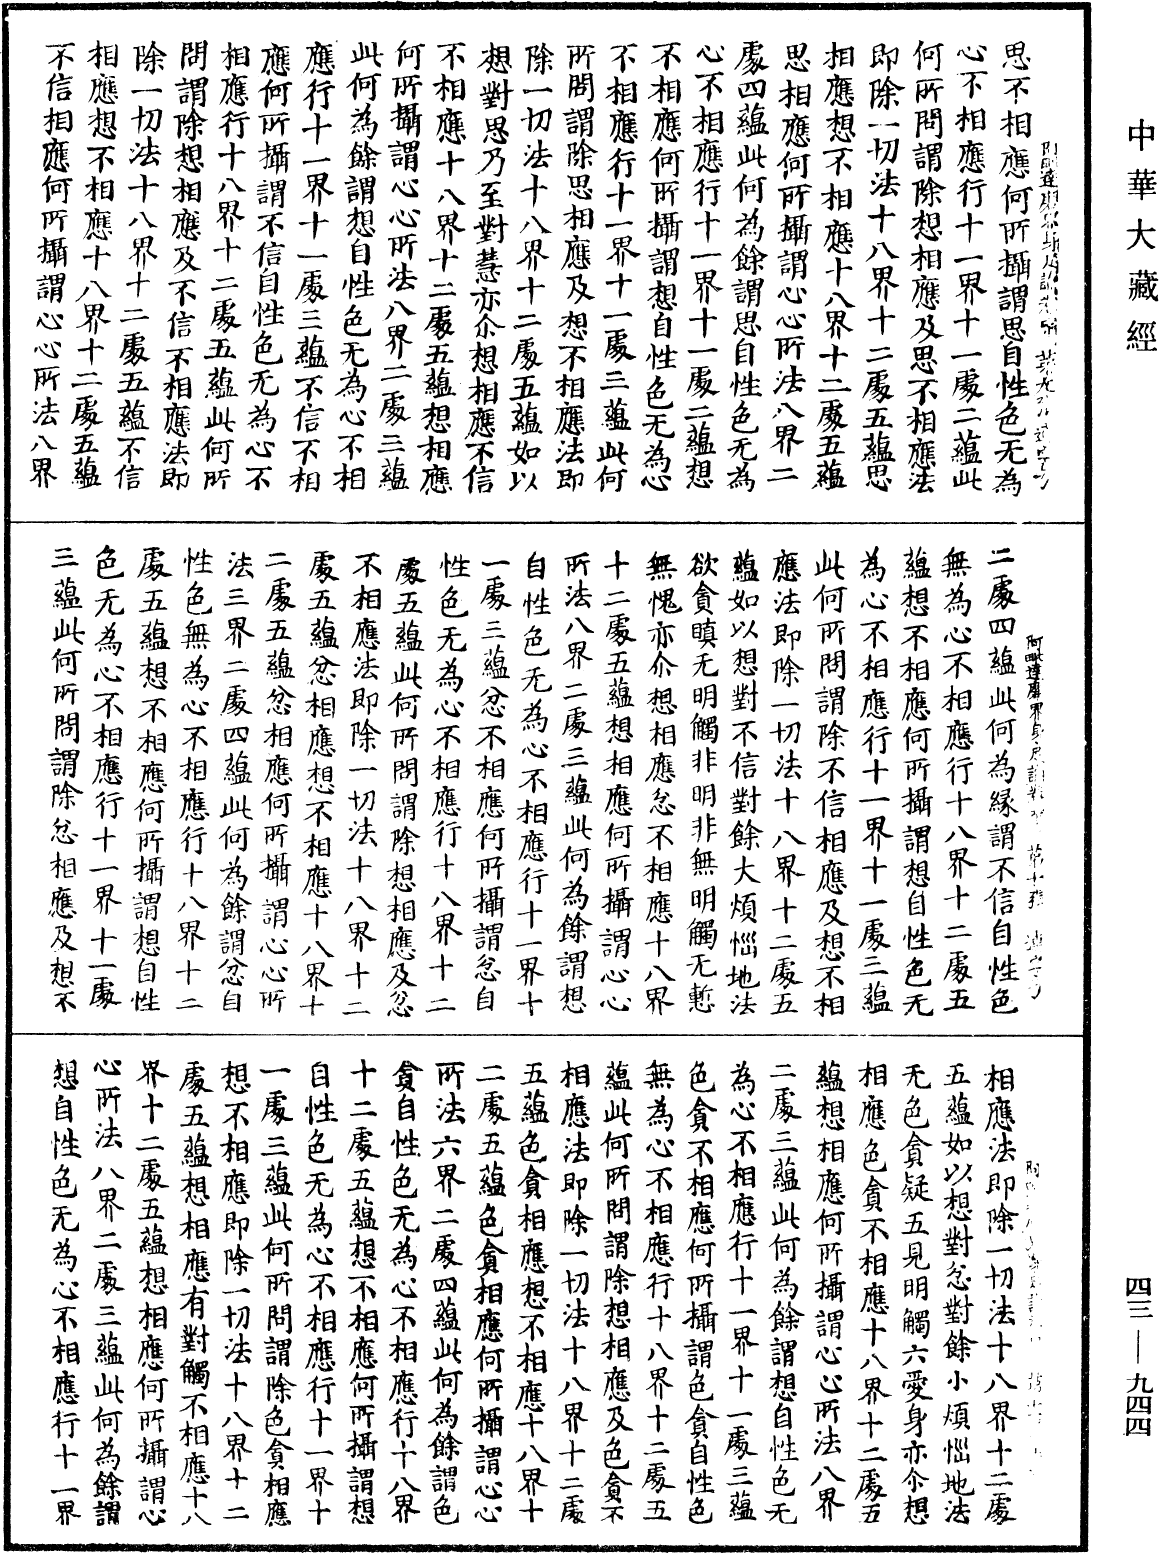 中華大藏經
思不相應何所攝謂思自性色无為
心不相應行十一界十一處二蘊此
何所問謂除想相應及思不相應法
即除一切法十八界十二處五蘊思
相應想不相應十八界十二處五蘊
思相應何所攝謂心心所法八界二
處四蘊此何為餘謂思自性色无為
心不相應行十一界十一處二蘊想
不相應何所攝謂想自性色无為心
不相應行十一界十一處三蘊此何
所問謂除思相應及想不相應法即
除一切法十八界十二處五蘊如以
想對思乃至對慧亦尒想相應不信
不相應十八界十二處五蘊想相應
何所攝謂心心所法八界二處三蘊
此何為餘謂想自性色无為心不相
應行十一界十一處三蘊不信不相
應何所攝謂不信自性色无為心不
相應行十八界十二處五蘊此何所
問謂除想相應及不信不相應法即
除一切法十八界十二處五蘊不信
相應想不相應十八界十二處五蘊
不信相應何所攝謂心心所法八界
二處四蘊此何為緣謂不信自性色
無為心不相應行十八界十二處五
蘊想不相應何所攝謂想自性色无
為心不相應行十一界十一處三蘊
此何所問謂除不信相應及想不相
應法即除一切法十八界十二處五
蘊如以想對不信對餘大煩惱地法
欲貪瞋无明觸非明非無明觸无慙
無愧亦尒想相應忿不相應十八界
十二處五蘊想相應何所攝謂心心
所法八界二處三蘊此何為餘謂想
自性色无為心不相應行十一界十
一處三蘊忿不相應何所攝謂忿自
性色无為心不相應行十八界十二
處五蘊此何所問謂除想相應及忿
不相應法即除一切法十八界十二
處五蘊忿相應想不相應十八界十
二處五蘊忿相應何所攝謂心心所
法三界二處四蘊此何為餘謂忿自
性色無為心不相應行十八界十二
處五蘊想不相應何所攝謂想自性
色无為心不相應行十一界十一處
三蘊此何所問謂除忿相應及想不
相應法即除一切法十八界十二處
五蘊如以想對忿對餘小煩惱地法
无色貪疑五見明觸六愛身亦尒想
相應色貪不相應十八界十二處五
蘊想相應何所攝謂心心所法八界
二處三蘊此何為餘謂想自性色无
為心不相應行十一界十一處三蘊
色貪不相應何所攝謂色貪自性色
無為心不相應行十八界十二處五
蘊此何所問謂除想相應及色貪不
相應法即除一切法十八界十二處
五蘊色貪相應想不相應十八界十
二處五蘊色貪相應何所攝謂心心
所法六界二處四蘊此何為餘謂色
貪自性色无為心不相應行十八界
十二處五蘊想不相應何所攝謂想
自性色无為心不相應行十一界十
一處三蘊此何所問謂除色貪相應
想不相應即除一切法十八界十二
處五蘊想相應有對觸不相應十八
界十二處五蘊想相應何所攝謂心
心所法八界二處三蘊此何為餘謂
想自性色无為心不相應行十一界
四三—九四四